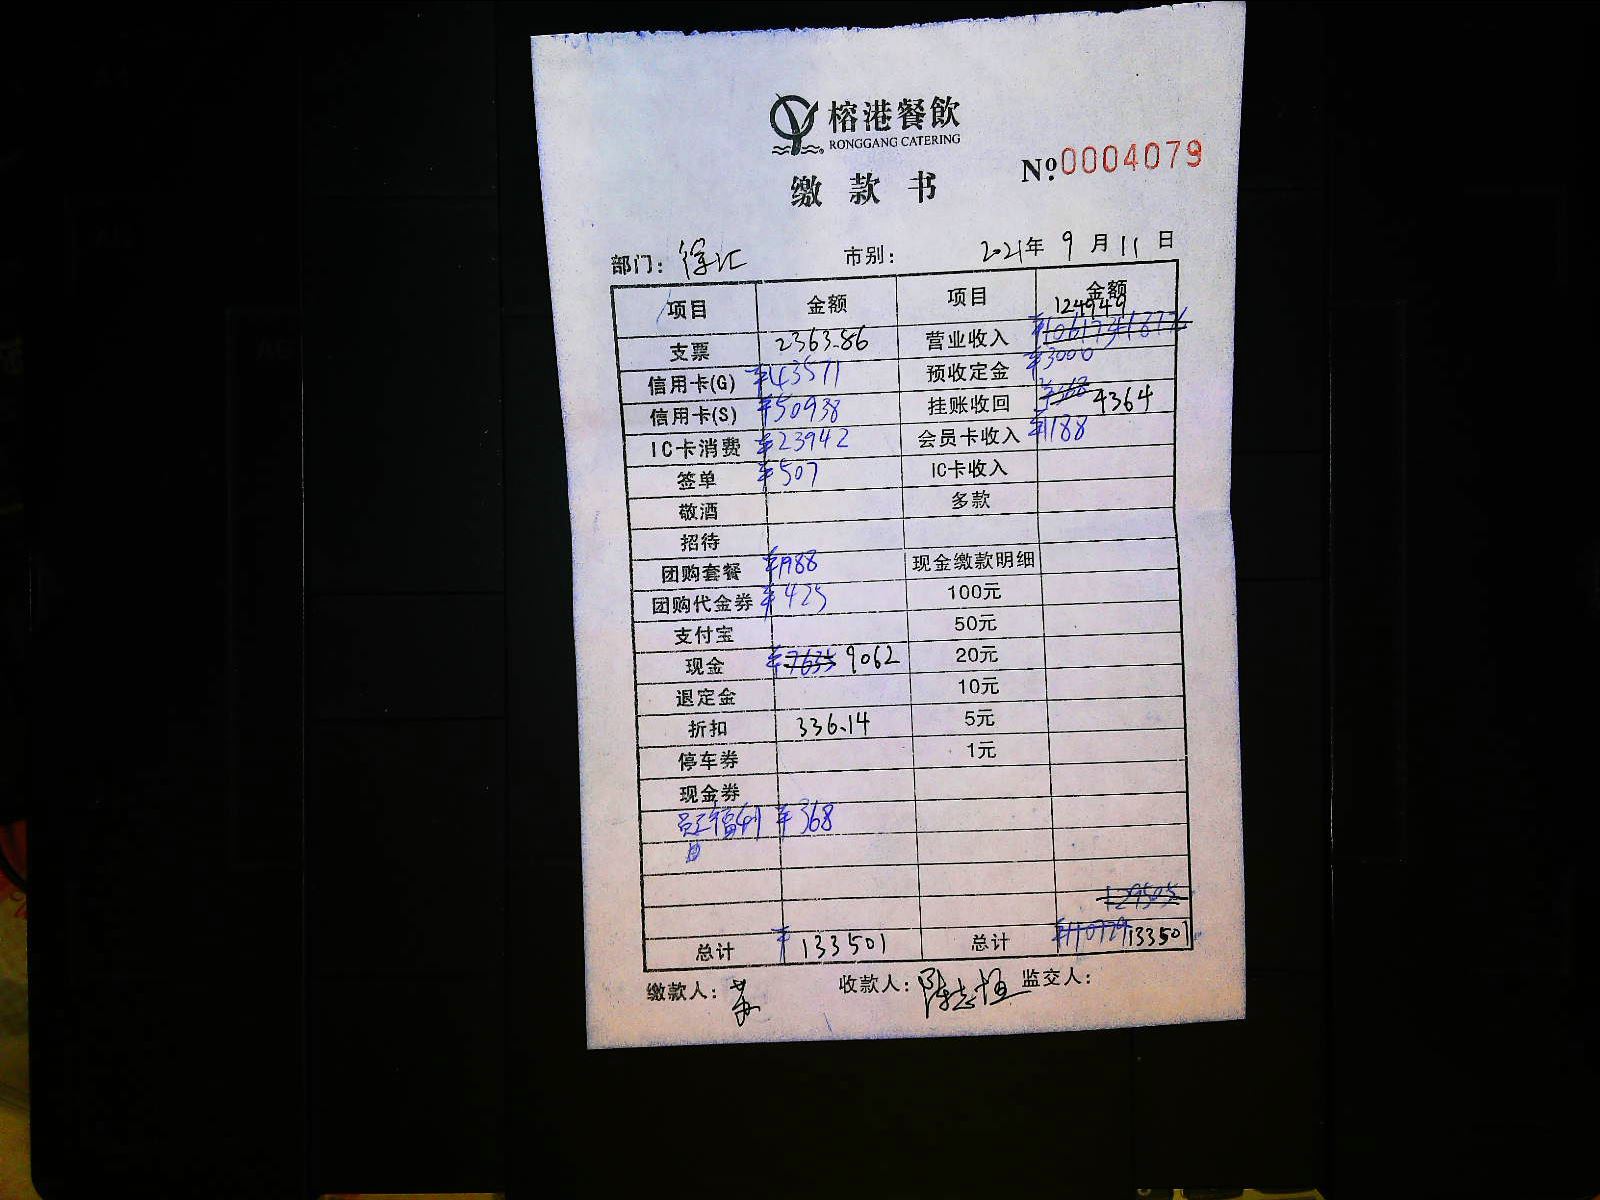 榕港餐飲
RONGGANG CATERING
№:0004079
缴款书
部门: 徐汇 市别: 2021年 9月 11日
项目 金额 项目 金额
支票 2363.86 营业收入 124949
信用卡(G) ¥43571 预收定金 ¥3000
信用卡(S) ¥50938 挂账收回 4364
IC卡消费 ¥23942 会员卡收入 ¥1188
签单 ¥507 IC卡收入
敬酒 多款
招待
团购套餐 ¥1988 现金缴款明细
团购代金券 ¥425 100元
支付宝 50元
现金 ¥7635 9062 20元
退定金 10元
折扣 336.14 5元
停车券 1元
现金券
员工福利 ¥368
129505
总计 ¥133501 总计 ¥110729 133501
缴款人: 收款人: 陈志恒 监交人: